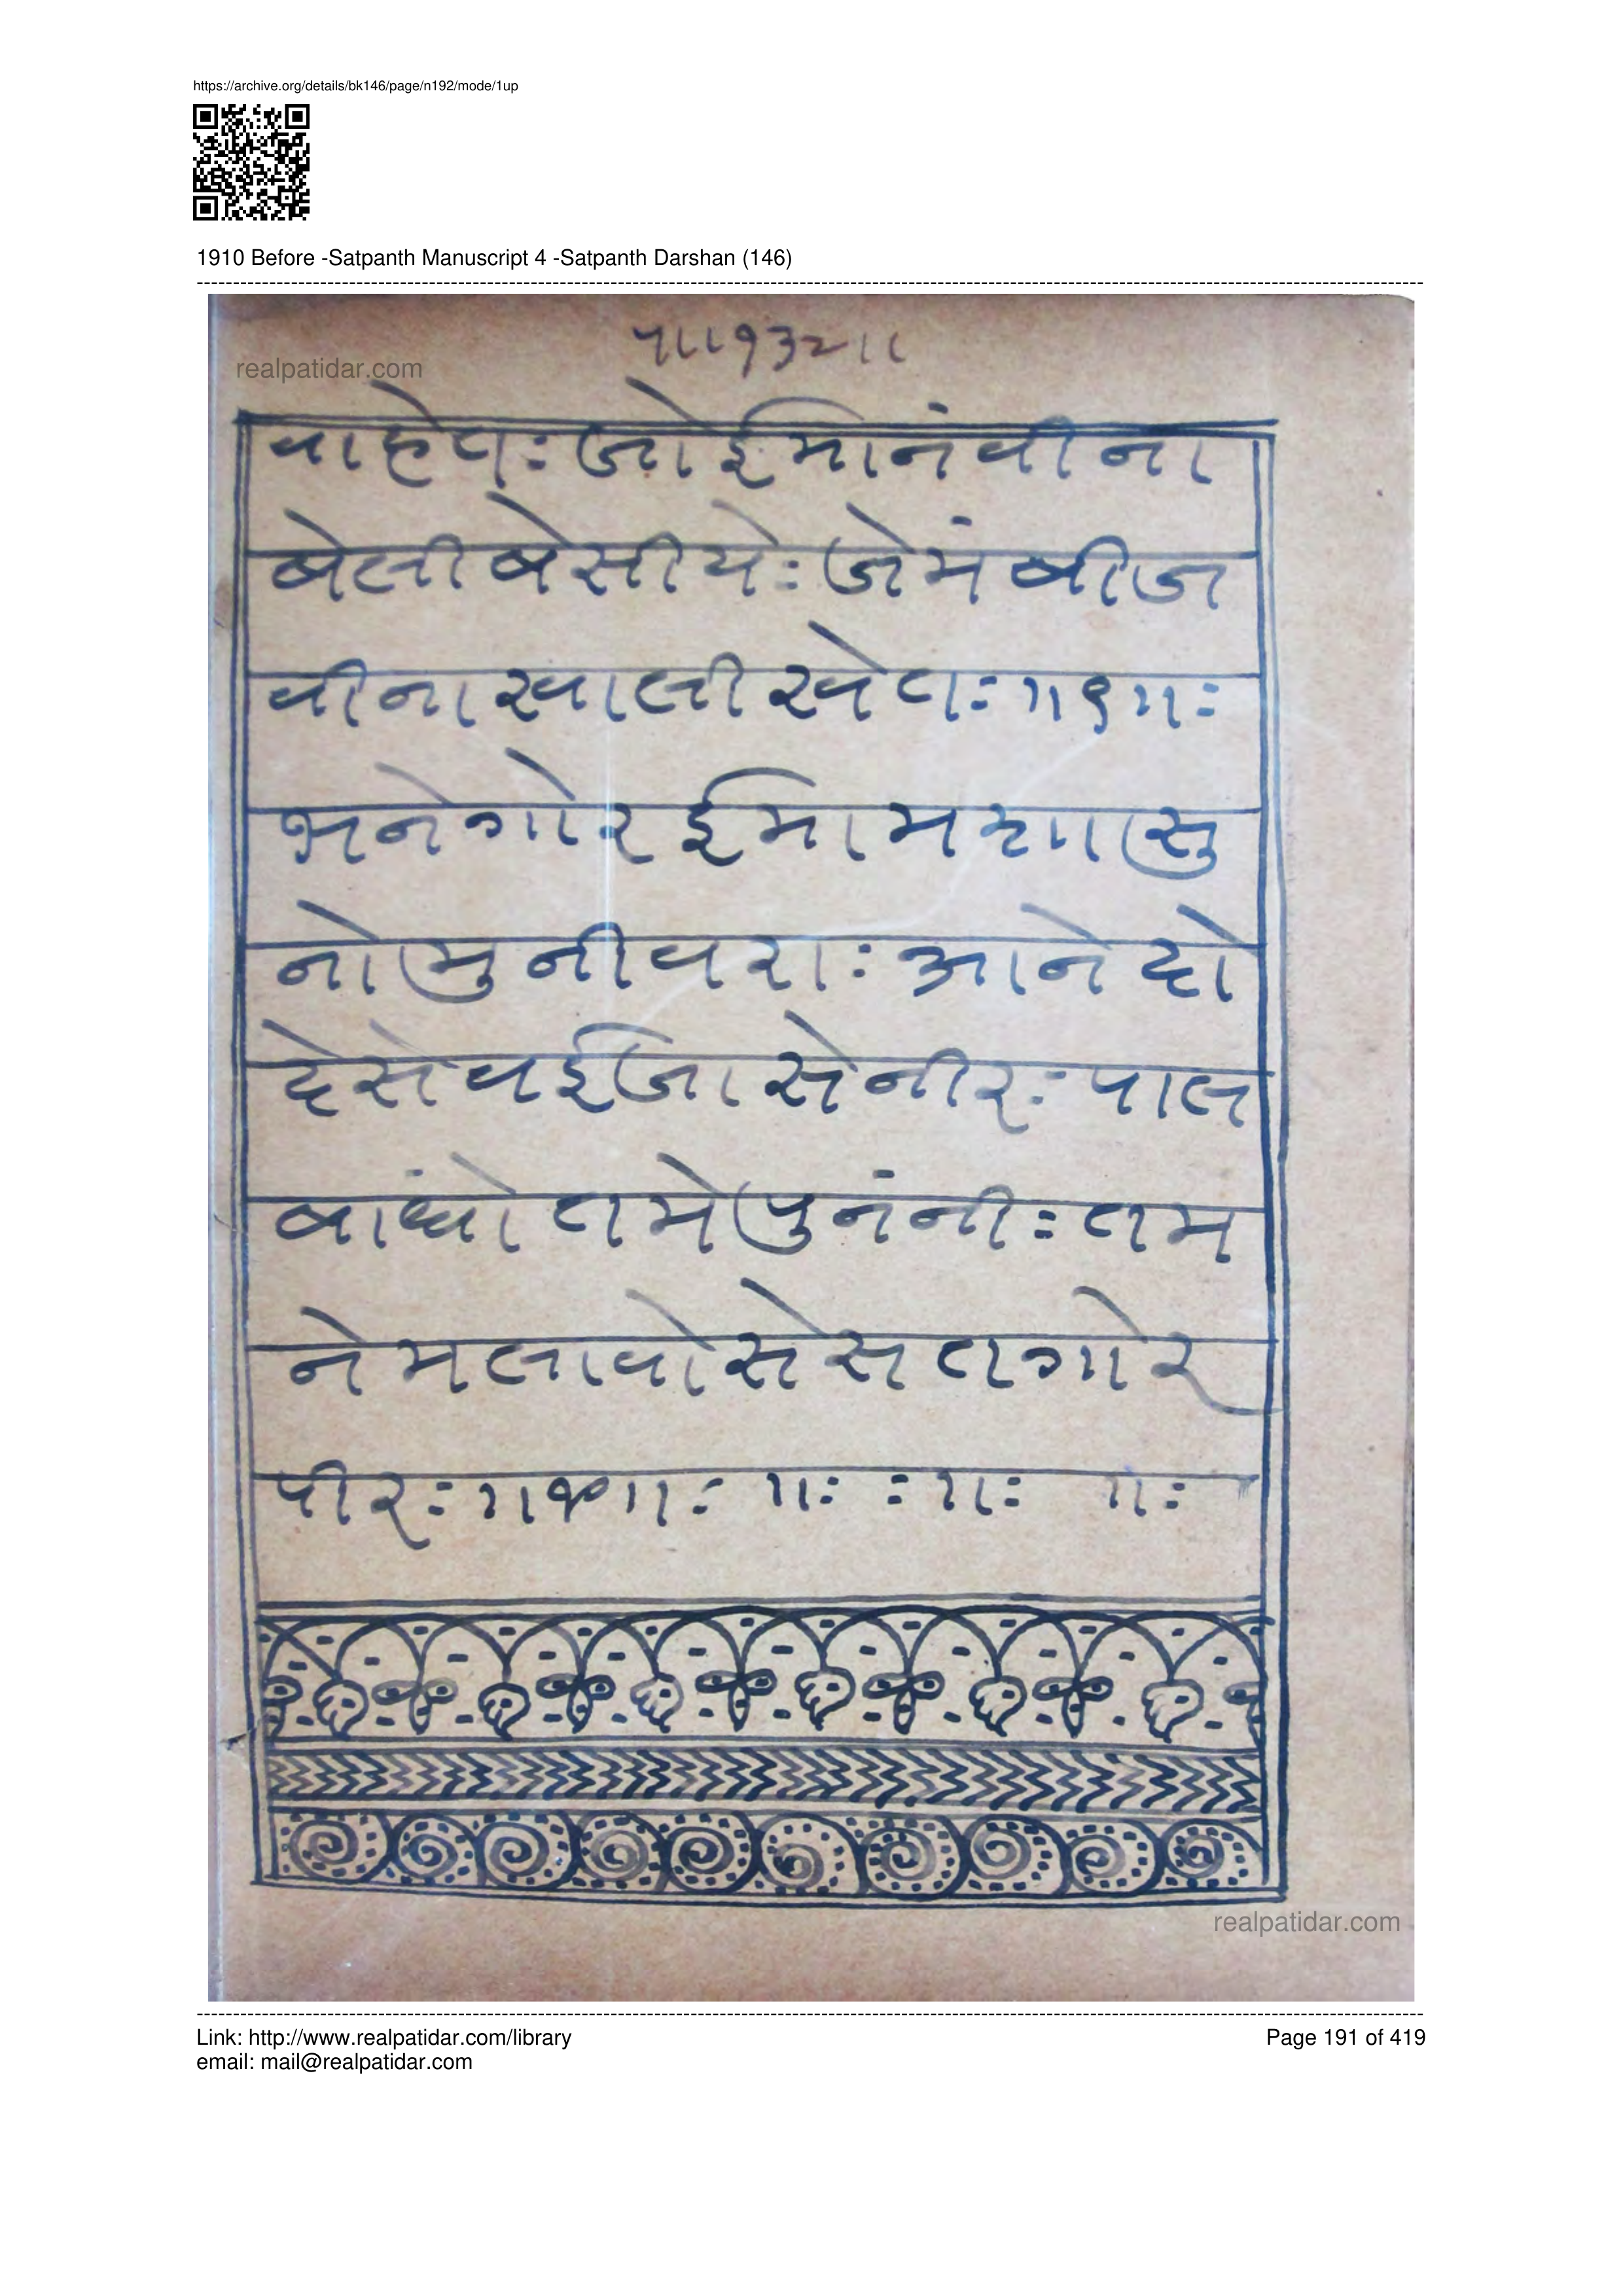 https://archive.org/details/bk146/page/n192/mode/1up
1910 Before -Satpanth Manuscript 4 -Satpanth Darshan (146)
प॥१३२॥
realpatidar.com
वाहेतः जोईमानंवीना
बेलीबेसीयेः जेमंबीज
वीनाखालीखेतः॥९॥ः
भनेगोरईमामशासु
नोमुनीवराः आनेदो
देसेवईजासेनीरः पाल
बांधोतमेपुनंनीः तम
नेमलावोसेसतगोर
पीरः॥१०॥ः ॥ः ः॥ः ॥ः
realpatidar.com
Link: http://www.realpatidar.com/library
Page 191 of 419
email: mail@realpatidar.com